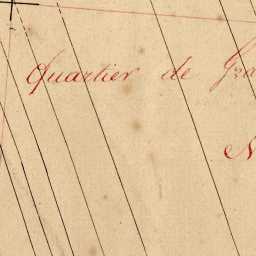 Quartier de Gra
N